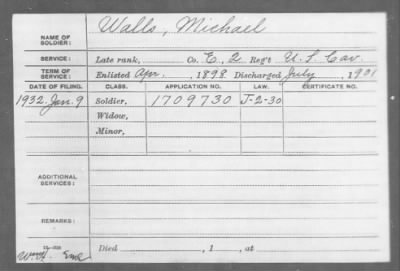 NAME OF SOLDIER: Walls, Michael
SERVICE: Late rank, Co. E, 2 Reg't U.S. Cav.
TERM OF SERVICE: Enlisted Apr., 1898 Discharged July, 1901
DATE OF FILING. CLASS. APPLICATION NO. LAW. CERTIFICATE NO.
1932 Jan. 9 Soldier, 1709730 J-2-30
Widow,
Minor,
ADDITIONAL SERVICES:
REMARKS:
Died , 1 , at